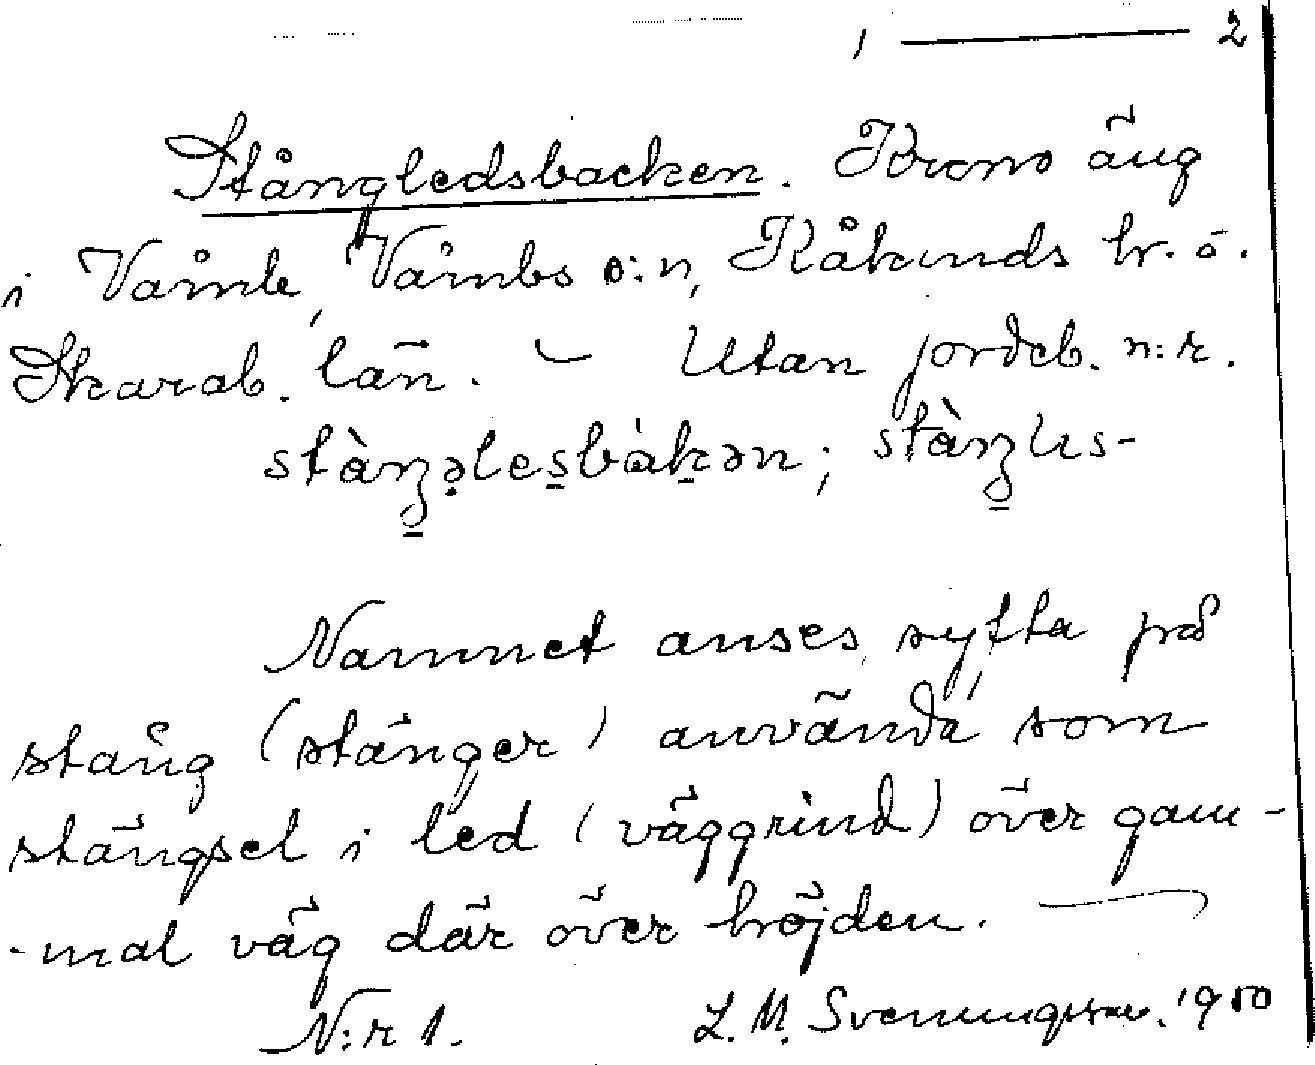 1 ——— 2
Stångledsbacken. Krono äng
i Våmb, Våmbs s:n, Kåkinds hr. ö.
Skarab. län. — Utan jordeb. n:r.
stàŋəlesbàkən; stàŋlis-
Namnet anses syfta på
stång (stänger) använda som
stängsel i led (väggrind) över gam-
-mal väg där över höjden. —
N:r 1. L. M. Svenungsson. 1950